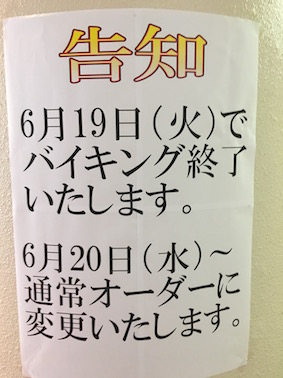 告知
6月19日（火）で
バイキング終了
いたします。
6月20日（水）～
通常オーダーに
変更いたします。